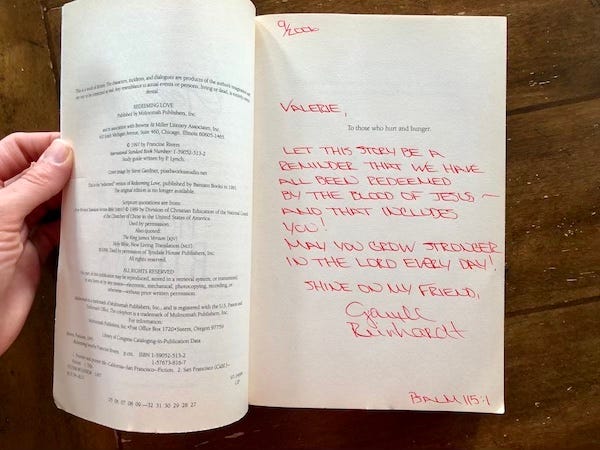 This is a work of fiction. The characters, incidents, and dialogues are products of the author's imagination and
are not to be construed as real. Any resemblance to actual events or persons, living or dead, is entirely
REDEEMING LOVE
Published by Multnomah Publishers, Inc.
and in association with Browne & Miller Literary Associates, Inc.
410 South Michigan Avenue, Suite 460, Chicago, Illinois 60605-1465
© 1997 by Francine Rivers
International Standard Book Number: 1-59052-513-2
Study guide written by P. Lynch.
Cover image by Steve Gardner, pixelworksstudio.net
This is the "redeemed" version of Redeeming Love, published by Bantam Books in 1991.
The original edition is no longer available.
Scripture quotations are from:
© 1989 by Division of Christian Education of the National Council
of the Churches of Christ in the United States of America.
Used by permission.
Also quoted:
The King James Version (KJV)
Holy Bible, New Living Translation (NLT)
© 1996. Used by permission of Tyndale House Publishers, Inc.
All rights reserved.
ALL RIGHTS RESERVED
No part of this publication may be reproduced, stored in a retrieval system, or transmitted,
in any form or by any means—electronic, mechanical, photocopying, recording, or
otherwise—without prior written permission.
Multnomah is a trademark of Multnomah Publishers, Inc., and is registered with the U.S. Patent and
Trademark Office. The colophon is a trademark of Multnomah Publishers, Inc.
For information:
Multnomah Publishers, Inc. • Post Office Box 1720 • Sisters, Oregon 97759
Library of Congress Cataloging-in-Publication Data
Rivers, Francine, 1947-
Redeeming love/by Francine Rivers. p. cm. ISBN 1-59052-513-2
1-57673-816-7
05 06 07 08 09—32 31 30 29 28 27
9/2006
VALERIE,
To those who hurt and hunger.
LET THIS STORY BE A
REMINDER THAT WE HAVE
ALL BEEN REDEEMED
BY THE BLOOD OF JESUS –
AND THAT INCLUDES
YOU!
MAY YOU GROW STRONGER
IN THE LORD EVERY DAY!
SHINE ON MY FRIEND,
Reinhardt
PSALM 115:1